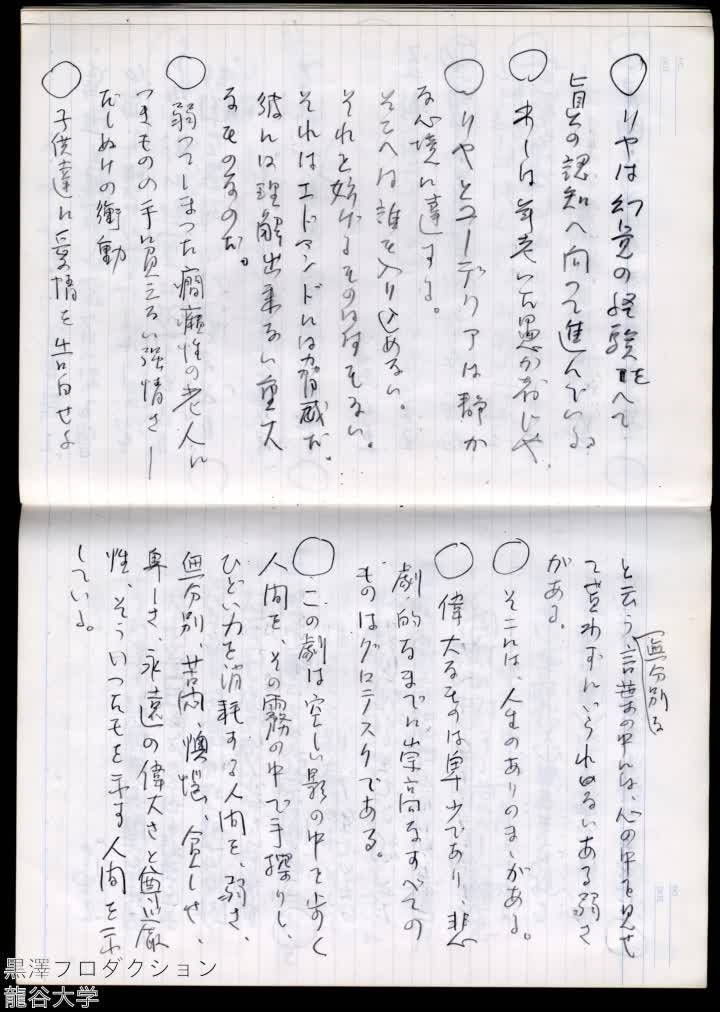 ○ リヤは幻覚の経験をへて
真の認知へ向って進んでいる。
○ わしは年老いた愚か者じゃ
○ リヤとコーデリアは静か
な心境に達する。
そこへは誰も入り込めない。
それを妨げるものはなもない。
それはエドマンドには脅威だ。
彼には理解出来ない重大
なものなのだ。
○ 弱ってしまった癇癪性の老人に
つきものの手に負えない強情さ―
だしぬけの衝動
○ 子供達に愛情を告白せよ
と云う無分別な言葉の中には、心の中を見せ
て貰わずにいられないある弱さ
がある。
○ そこには、人生のありのまゝがある。
○ 偉大なものは卑少であり、悲
劇的なまでに崇高なすべての
ものはグロテスクである。
○ この劇は空しい影の中を歩く
人間を、その霧の中で手探りし、
ひどい力を消耗する人間を、弱さ、
無分別、苦悶、懊悩、貧しさ、
卑しさ、永遠の偉大さと尊厳
性、そういったものを示す人間を示
している。
黒澤プロダクション
龍谷大学